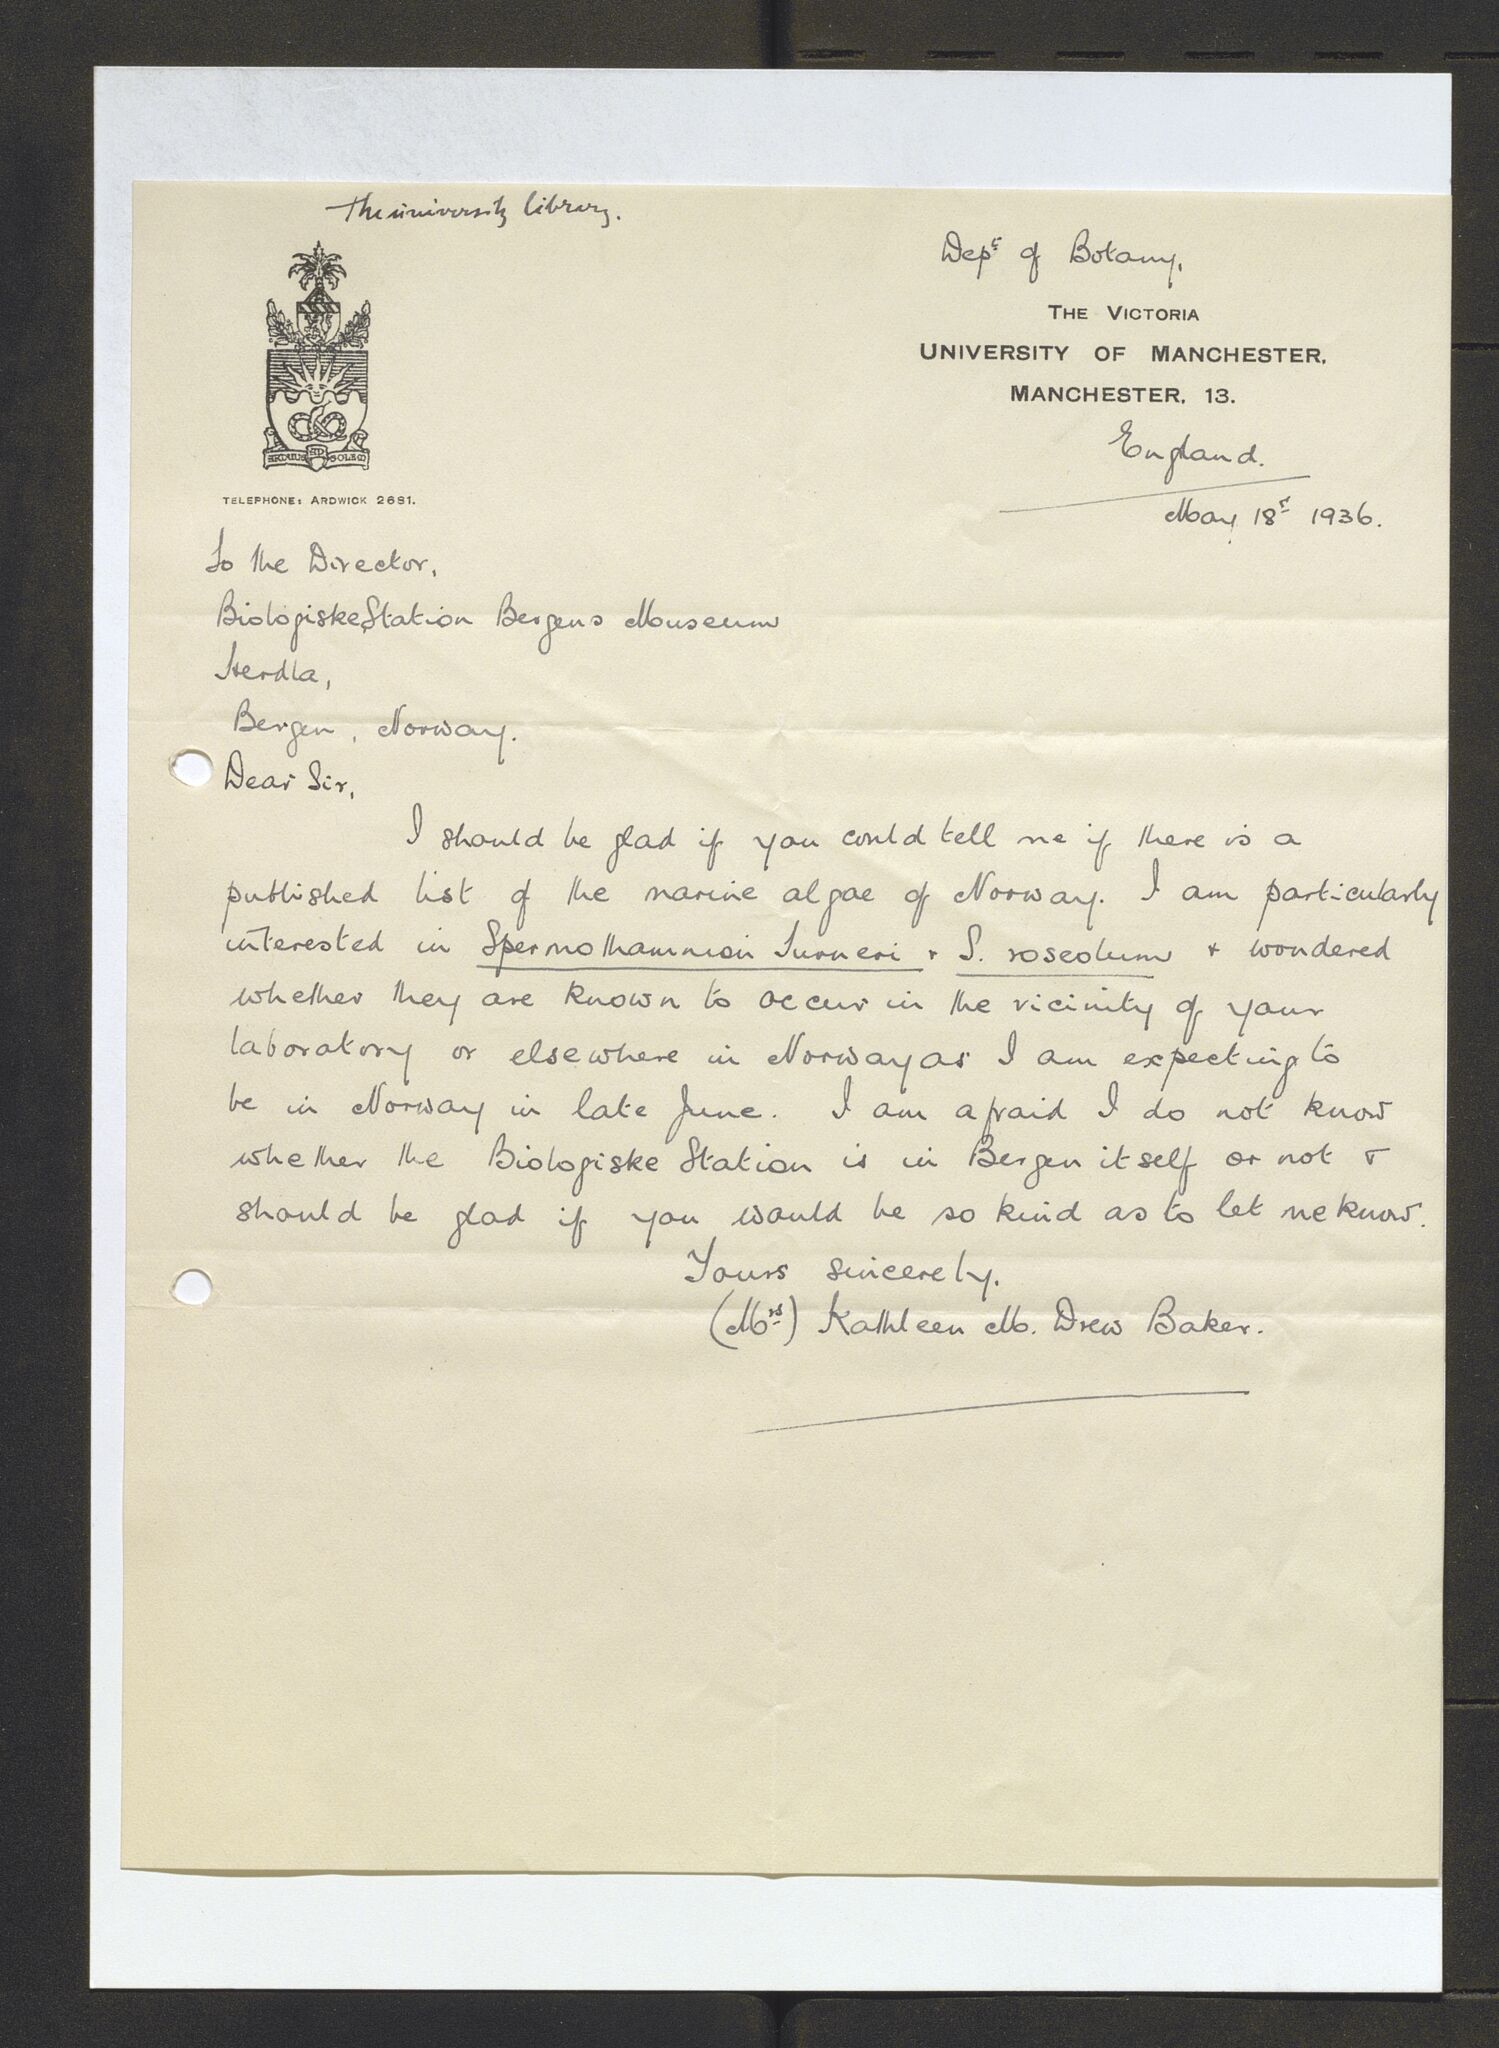 The university library.
Dept of Botany.
THE VICTORIA
UNIVERSITY OF MANCHESTER.
MANCHESTER, 13.
England.
May 18t 1936.
ARDUUS AD SOLEM
TELEPHONE: ARDWICK 2681.
To the Director,
Biologiske Station Bergens Museum
Herdla,
Bergen, Norway.
Dear Sir,
I should be glad if you could tell me if there is a
published list of the marine algae of Norway. I am particularly
interested in Spermothamnion Turneri + S. roseolum + wondered
whether they are known to occur in the vicinity of your
laboratory or elsewhere in Norway as I am expecting to
be in Norway in late June. I am afraid I do not know
whether the Biologiske Station is in Bergen itself or not +
should be glad if you would be so kind as to let me know.
Yours sincerely.
(Mrs) Kathleen M. Drew Baker.